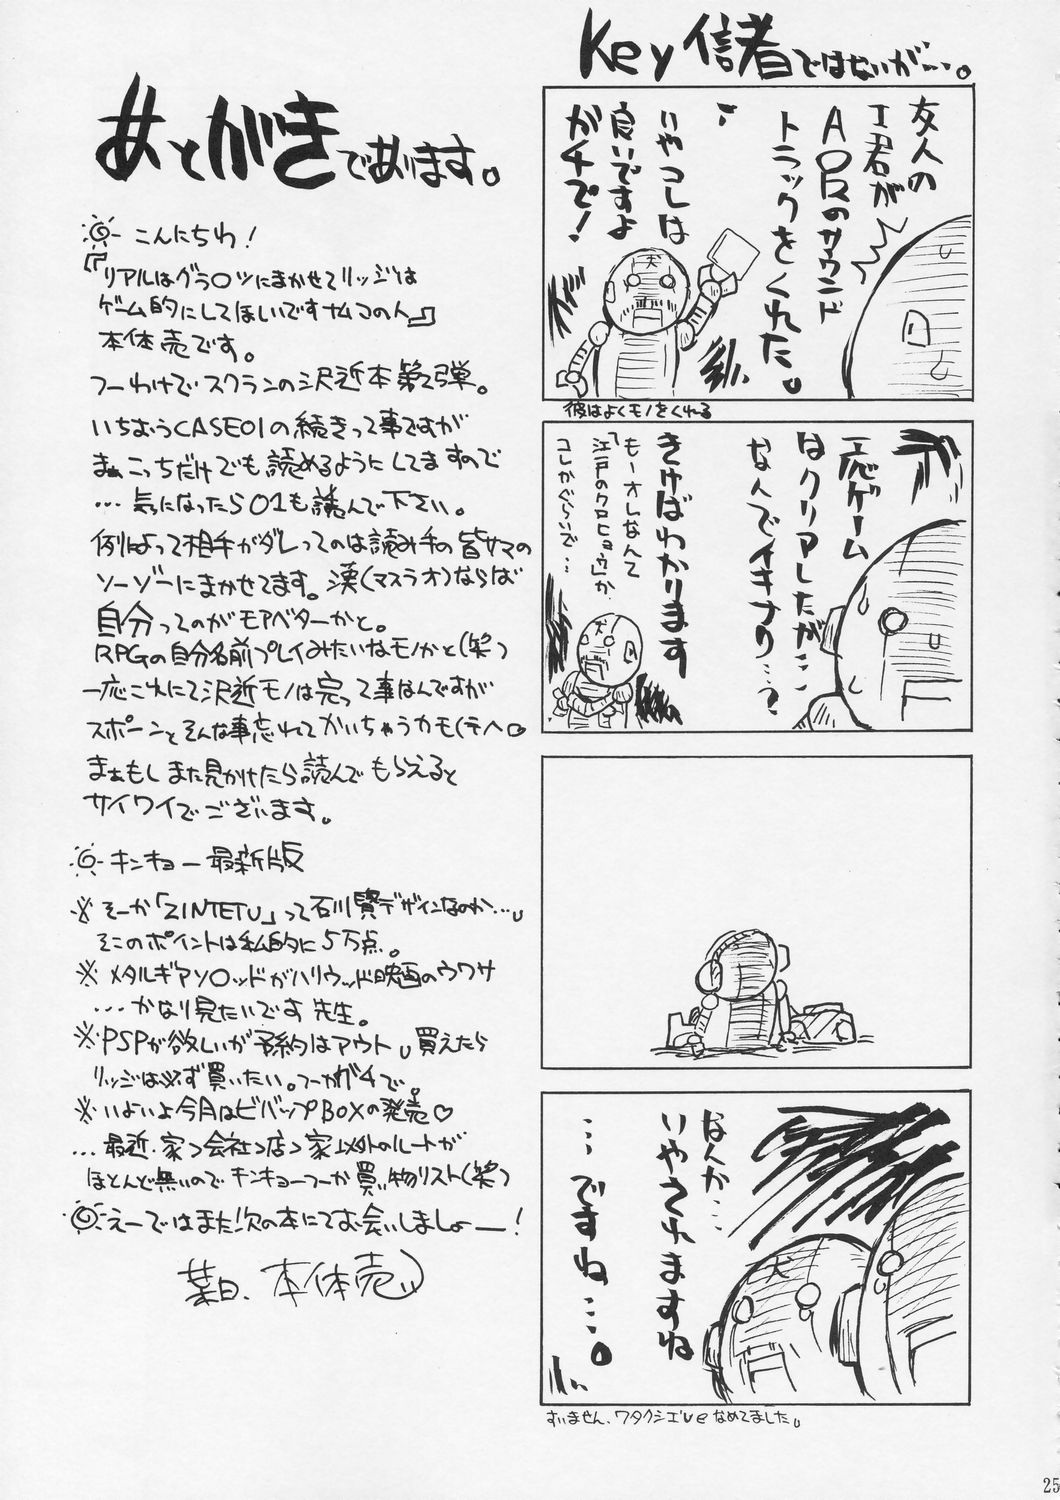 Key信者ではないが…。
友人の
I君が
AIRのサウンド
トラックをくれた。
いやコレは
良いですよ
ガチで!
犬
彼はよくモノをくれる
一応ゲーム
はクリアしたが…
なんでイキナリ…?
きけばわかります
もーオレなんて
「江戸のクロヒョウ」か、
コレかぐらいで…
犬
なんか…
いやされますね
…ですね…。
犬
すいません、ワタクシエLveなめてました。
あとがきであります。
こんにちわ!
『リアルはグラ○ツにまかせてリッジは
ゲーム的にしてほしいですナムコの人』
本体売です。
つーわけでスクランの沢近本第2弾。
いちおうCASE01の続きって事ですが
まぁこっちだけでも読めるようにしてますので
…気になったら01も読んで下さい。
例によって相手がダレってのは読み手の皆サマの
ソーゾーにまかせてます。漢(マスラオ)ならば
自分ってのがモアベターかと。
RPGの自分名前プレイみたいなモノかと(笑)
一応これにて沢近モノは完って事なんですが
スポーンとそんな事忘れてかいちゃうカモ(テヘ。
まぁもしまた見かけたら読んでもらえると
サイワイでございます。
キンキョー最新版
※そーか「ZINTETU」って石川賢デザインなのか…。
そこのポイントは私的に5万点。
※メタルギアソ○ッドがハリウッド映画のウワサ
…かなり見たいです先生。
※PSPが欲しいが予約はアウト。買えたら
リッジは必ず買いたい。つーかガチで。
※いよいよ今月はビバップBOXの発売♡
…最近、家→会社→店→家以外のルートが
ほとんど無いのでキンキョーつーか買い物リスト(笑)
えーではまた次の本にてお会いしましょー!
葉日、本体売
25